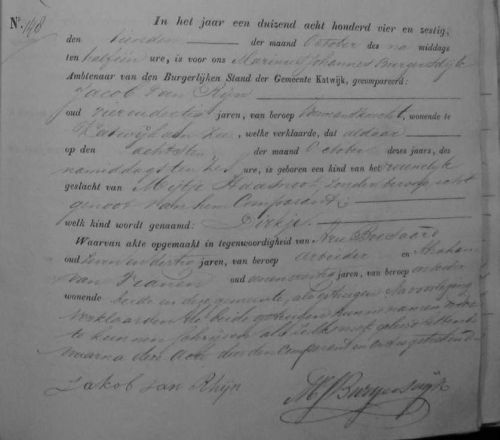 N.º 148
In het jaar een duizend acht honderd vier en zestig,
den tienden der maand October des na middags
ten half een ure, is voor ons Marinus Johannes Burgersdijk
Ambtenaar van den Burgerlijken Stand der Gemeente Katwijk, gecompareerd:
Jacob van Rijn
oud jaren, van beroep wonende te
Katwijk aan Zee, welke verklaarde, dat aldaar
op den achtsten der maand October dezes jaars, des
namiddags ten ure, is geboren een kind van het vrouwelijk
geslacht van Mijtje Haasnoot, zonder beroep, echt
genoot van hem Comparant;
welk kind wordt genaamd: Dirkje.
Waarvan akte opgemaakt in tegenwoordigheid van Arie
oud zeven en dertig jaren, van beroep Arbeider en Abraham
van oud jaren, van beroep
wonende beide in deze gemeente, als getuigen. Na voorlezing
verklaarden de beide getuigen hunne namen
te kunnen schrijven
waarna deze door den Comparant en Ons is geteekend
Jakob van Rhijn MJBurgersdijk